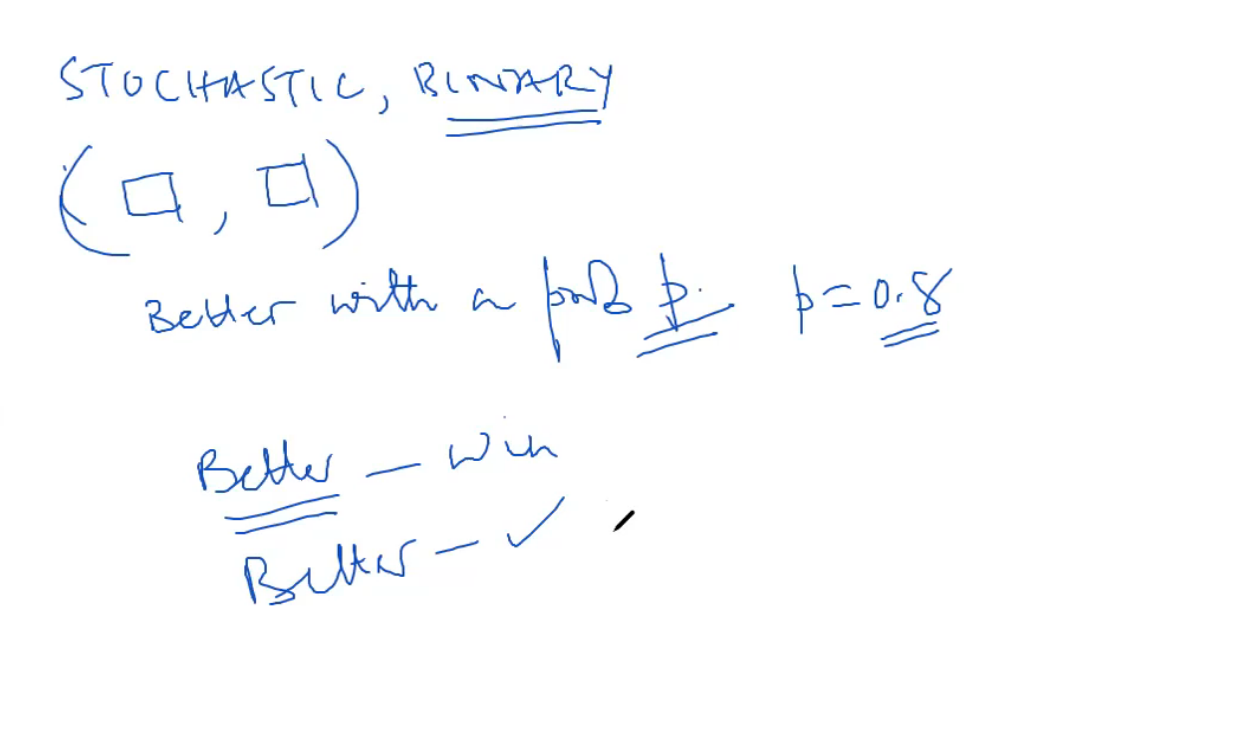 STOCHASTIC, BINARY
( □ , □ )
Better with a prob p. p = 0.8
Better — win
Better — ✓